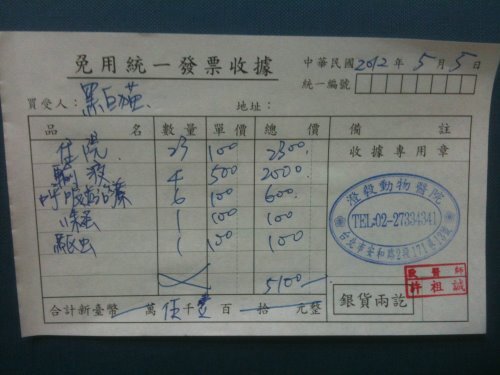 免用統一發票收據
中華民國2012年5月5日
統一編號
買受人：黑白猫 地址：
品名 數量 單價 總價 備註
住院 23 100 2300 收據專用章
輸液 4 500 2000
呼吸治療 6 100 600
1 100 100
驅虫 1 100 100
澄毅動物醫院
TEL:02-27334341
5100
獸醫師
許祖誠
合計新臺幣 萬伍千壹百拾元整 銀貨兩訖